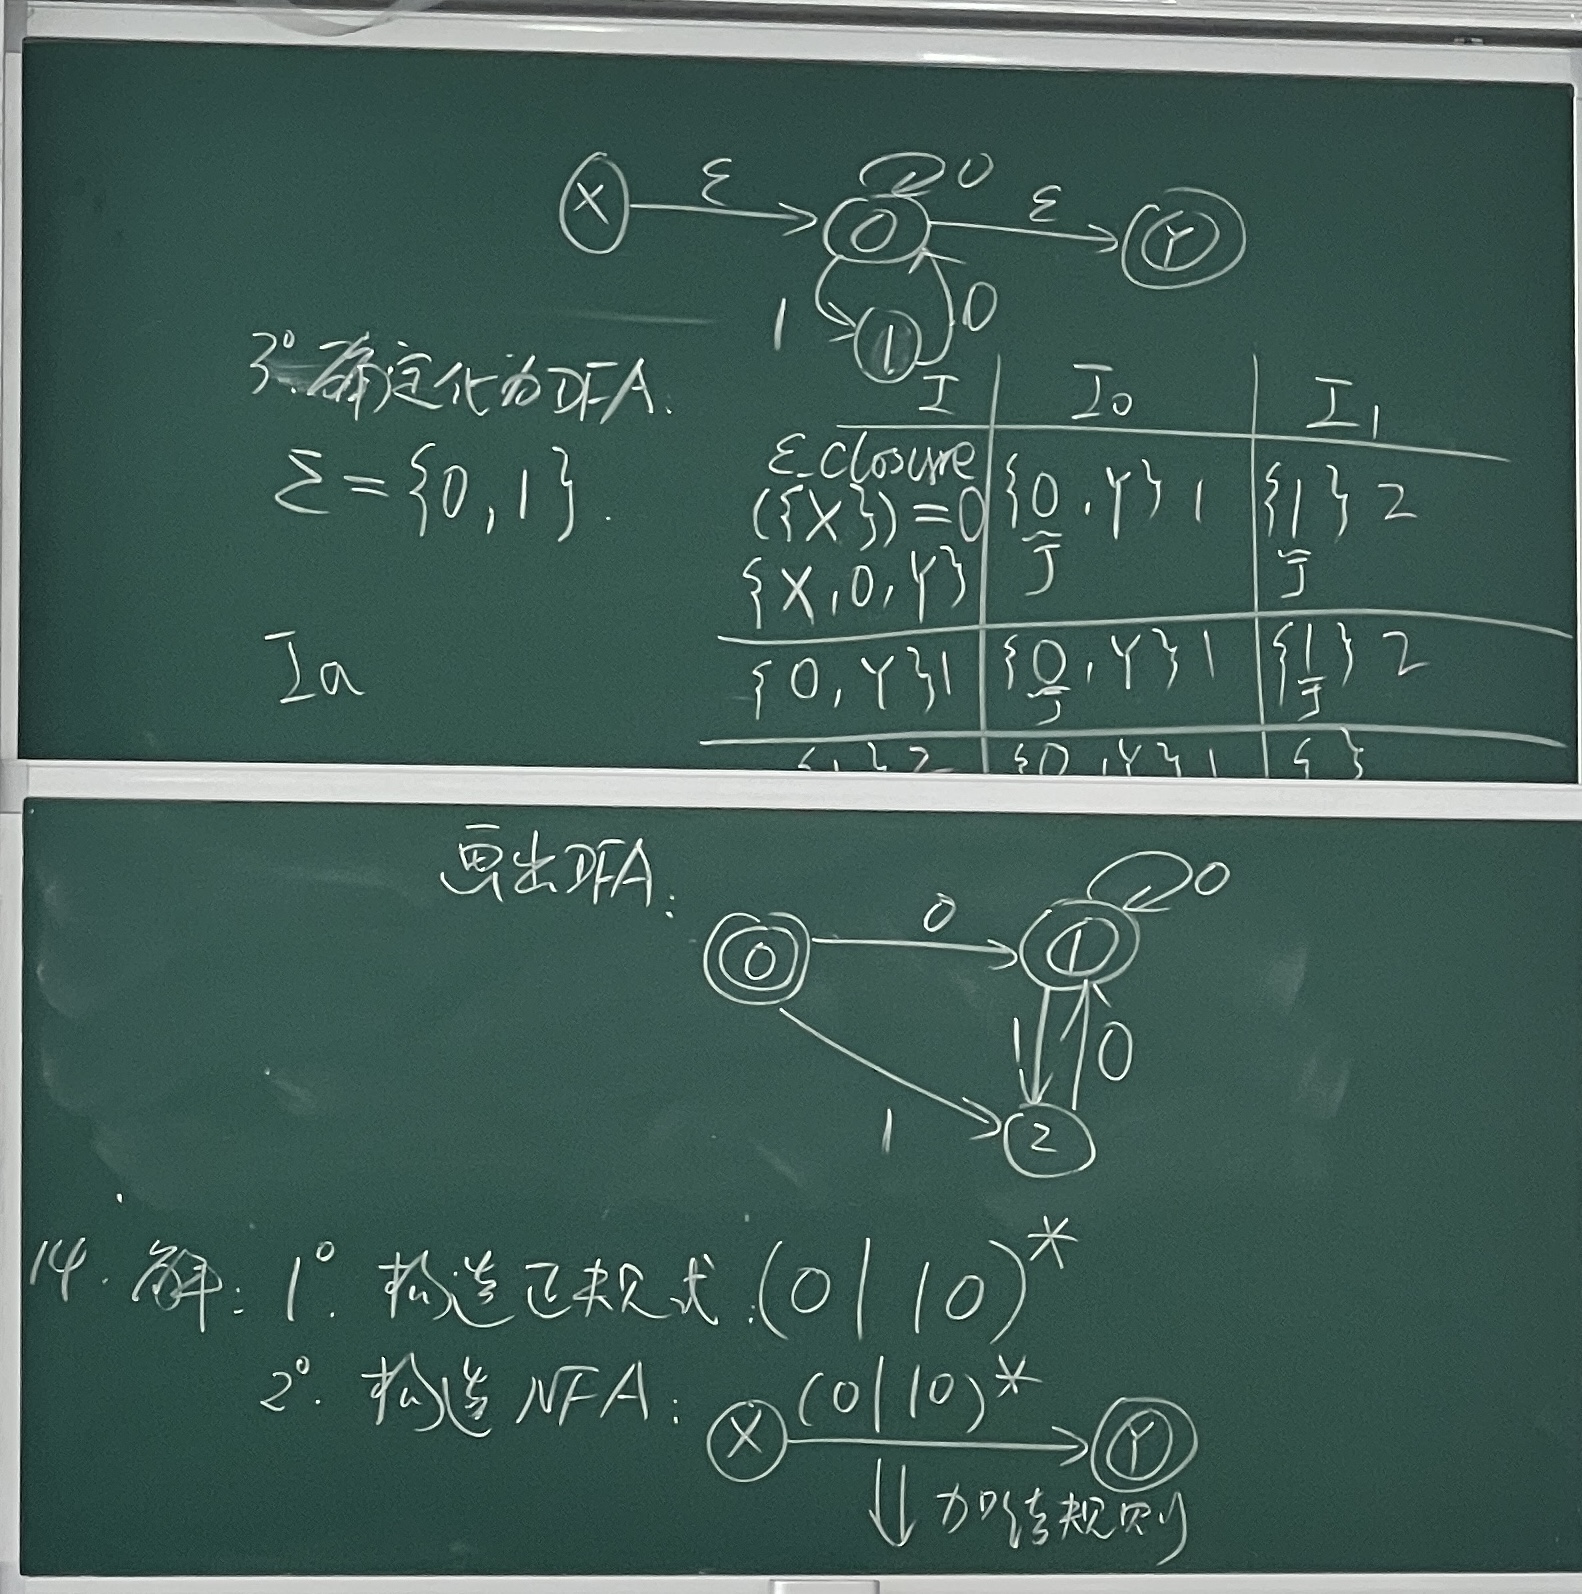 X ε 0 0 ε Y
1 1 0
3°. 确定化为DFA.
Σ={0,1}.
I I0 I1
ε_closure
({X})=0 {0,Y}1 {1}2
{X,0,Y} J J
Ia
{0,Y}1 {0,Y}1 {1}2
J J
{1}2 {0,Y}1 { }
画出DFA:
0 0 1 0
1 0
1 2
14. 解: 1°. 构造正规式:(0|10)*
2°. 构造NFA: X (0|10)* Y
⇓ 加结规则